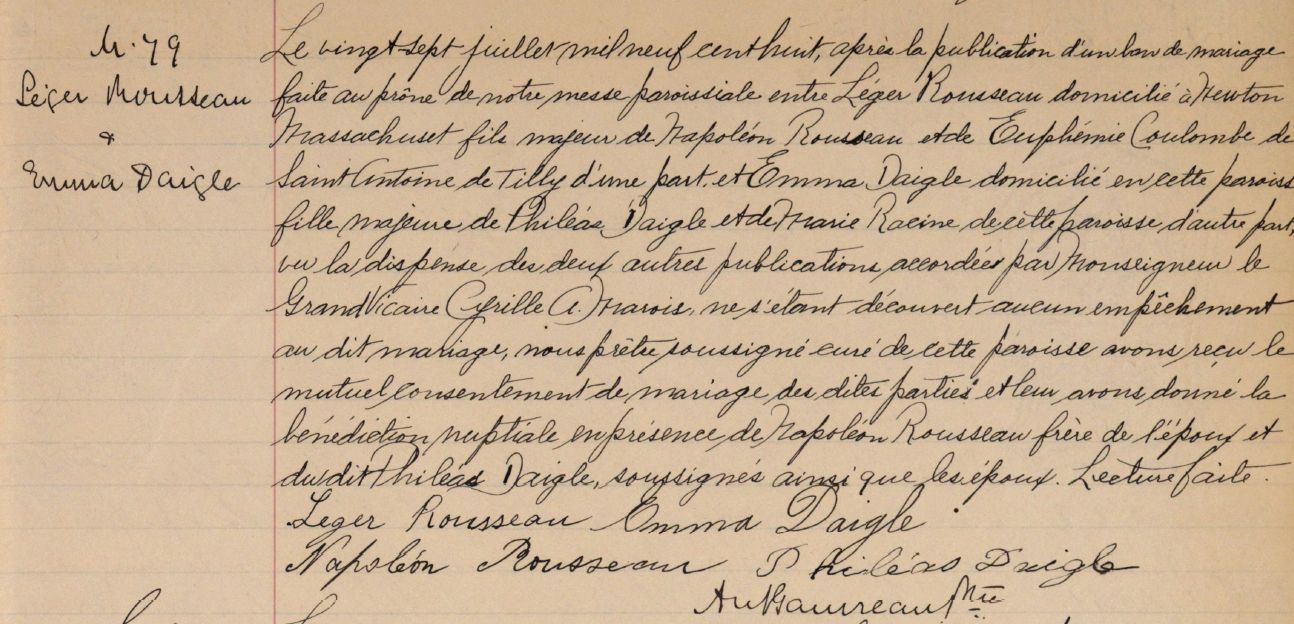 M. 79
Léger Rousseau
&
Emma Daigle
Le vingt-sept juillet mil neuf cent huit, après la publication d'un ban de mariage
faite au prône de notre messe paroissiale entre Léger Rousseau domicilié à Newton
Massachuset fils majeur de Napoléon Rousseau et de Euphémie Coulombe de
Saint Antoine de Tilly d'une part, et Emma Daigle domicilié en cette paroiss
fille majeure de Philéas Daigle et de Marie Racine de cette paroisse d'autre part,
vu la dispense des deux autres publications accordées par Monseigneur le
Grand Vicaire Cyrille A. Marois, ne s'étant découvert aucun empêchement
au dit mariage, nous prêtre soussigné curé de cette paroisse avons reçu le
mutuel consentement de mariage des dites parties et leur avons donné la
bénédiction nuptiale en présence de Napoléon Rousseau frère de l'époux et
du dit Philéas Daigle, soussignés ainsi que les époux. Lecture faite.
Leger Rousseau Emma Daigle
Napoléon Rousseau Philéas Daigle
Ptre